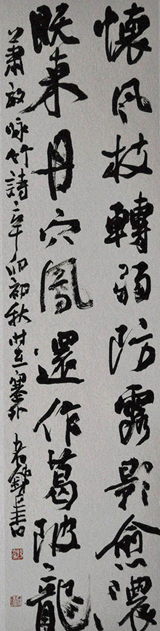 懷風枝轉弱防露影愈濃
既來丹穴鳳還作葛陂龍
蕭放詠竹詩辛卯初秋